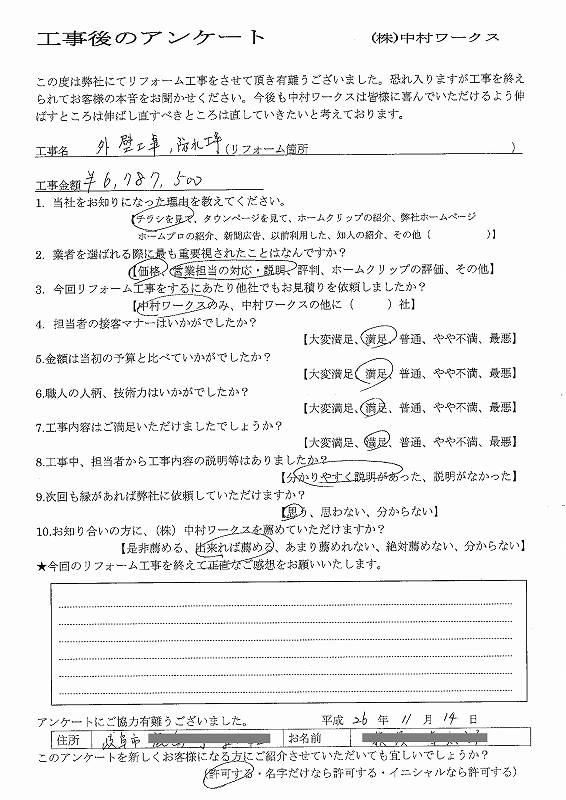 工事後のアンケート　(株)中村ワークス
この度は弊社にてリフォーム工事をさせて頂き有難うございました。恐れ入りますが工事を終え
られてお客様の本音をお聞かせください。今後も中村ワークスは皆様に喜んでいただけるよう伸
ばすところは伸ばし直すべきところは直していきたいと考えております。
工事名　外壁工事、防水工事(リフォーム箇所　)
工事金額　¥6,787,500
1. 当社をお知りになった理由を教えてください。
【チラシを見て、タウンページを見て、ホームクリップの紹介、弊社ホームページ
ホームプロの紹介、新聞広告、以前利用した、知人の紹介、その他（　）】
2. 業者を選ばれる際に最も重要視されたことはなんですか？
【価格、営業担当の対応・説明、評判、ホームクリップの評価、その他】
3. 今回リフォーム工事をするにあたり他社でもお見積りを依頼しましたか？
【中村ワークスのみ、中村ワークスの他に（　）社】
4. 担当者の接客マナーはいかがでしたか？
【大変満足、満足、普通、やや不満、最悪】
5.金額は当初の予算と比べていかがでしたか？
【大変満足、満足、普通、やや不満、最悪】
6.職人の人柄、技術力はいかがでしたか？
【大変満足、満足、普通、やや不満、最悪】
7.工事内容はご満足いただけましたでしょうか？
【大変満足、満足、普通、やや不満、最悪】
8.工事中、担当者から工事内容の説明等はありましたか？
【分かりやすく説明があった、説明がなかった】
9.次回も縁があれば弊社に依頼していただけますか？
【思う、思わない、分からない】
10.お知り合いの方に、（株）中村ワークスを薦めていただけますか？
【是非薦める、出来れば薦める、あまり薦めれない、絶対薦めない、分からない】
★今回のリフォーム工事を終えて正直なご感想をお願いいたします。
アンケートにご協力有難うございました。　平成 26 年 11 月 14 日
住所　岐阜市　お名前
このアンケートを新しくお客様になる方にご紹介させていただいても宜しいでしょうか？
（許可する・名字だけなら許可する・イニシャルなら許可する）